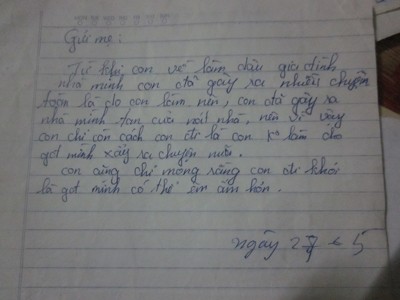 Gửi mẹ:
Từ khi con về làm dâu gia đình
nhà mình con đã gây ra nhiều chuyện
toàn là do con làm nên, con đã gây ra
nhà mình tan cửa nát nhà, nên vì vậy
con chỉ còn cách con đi là con ko làm cho
gđ mình xảy ra chuyện nữa.
con cũng chỉ mong rằng con đi khỏi
là gđ mình có thể êm ấm hơn.
ngày 27 5